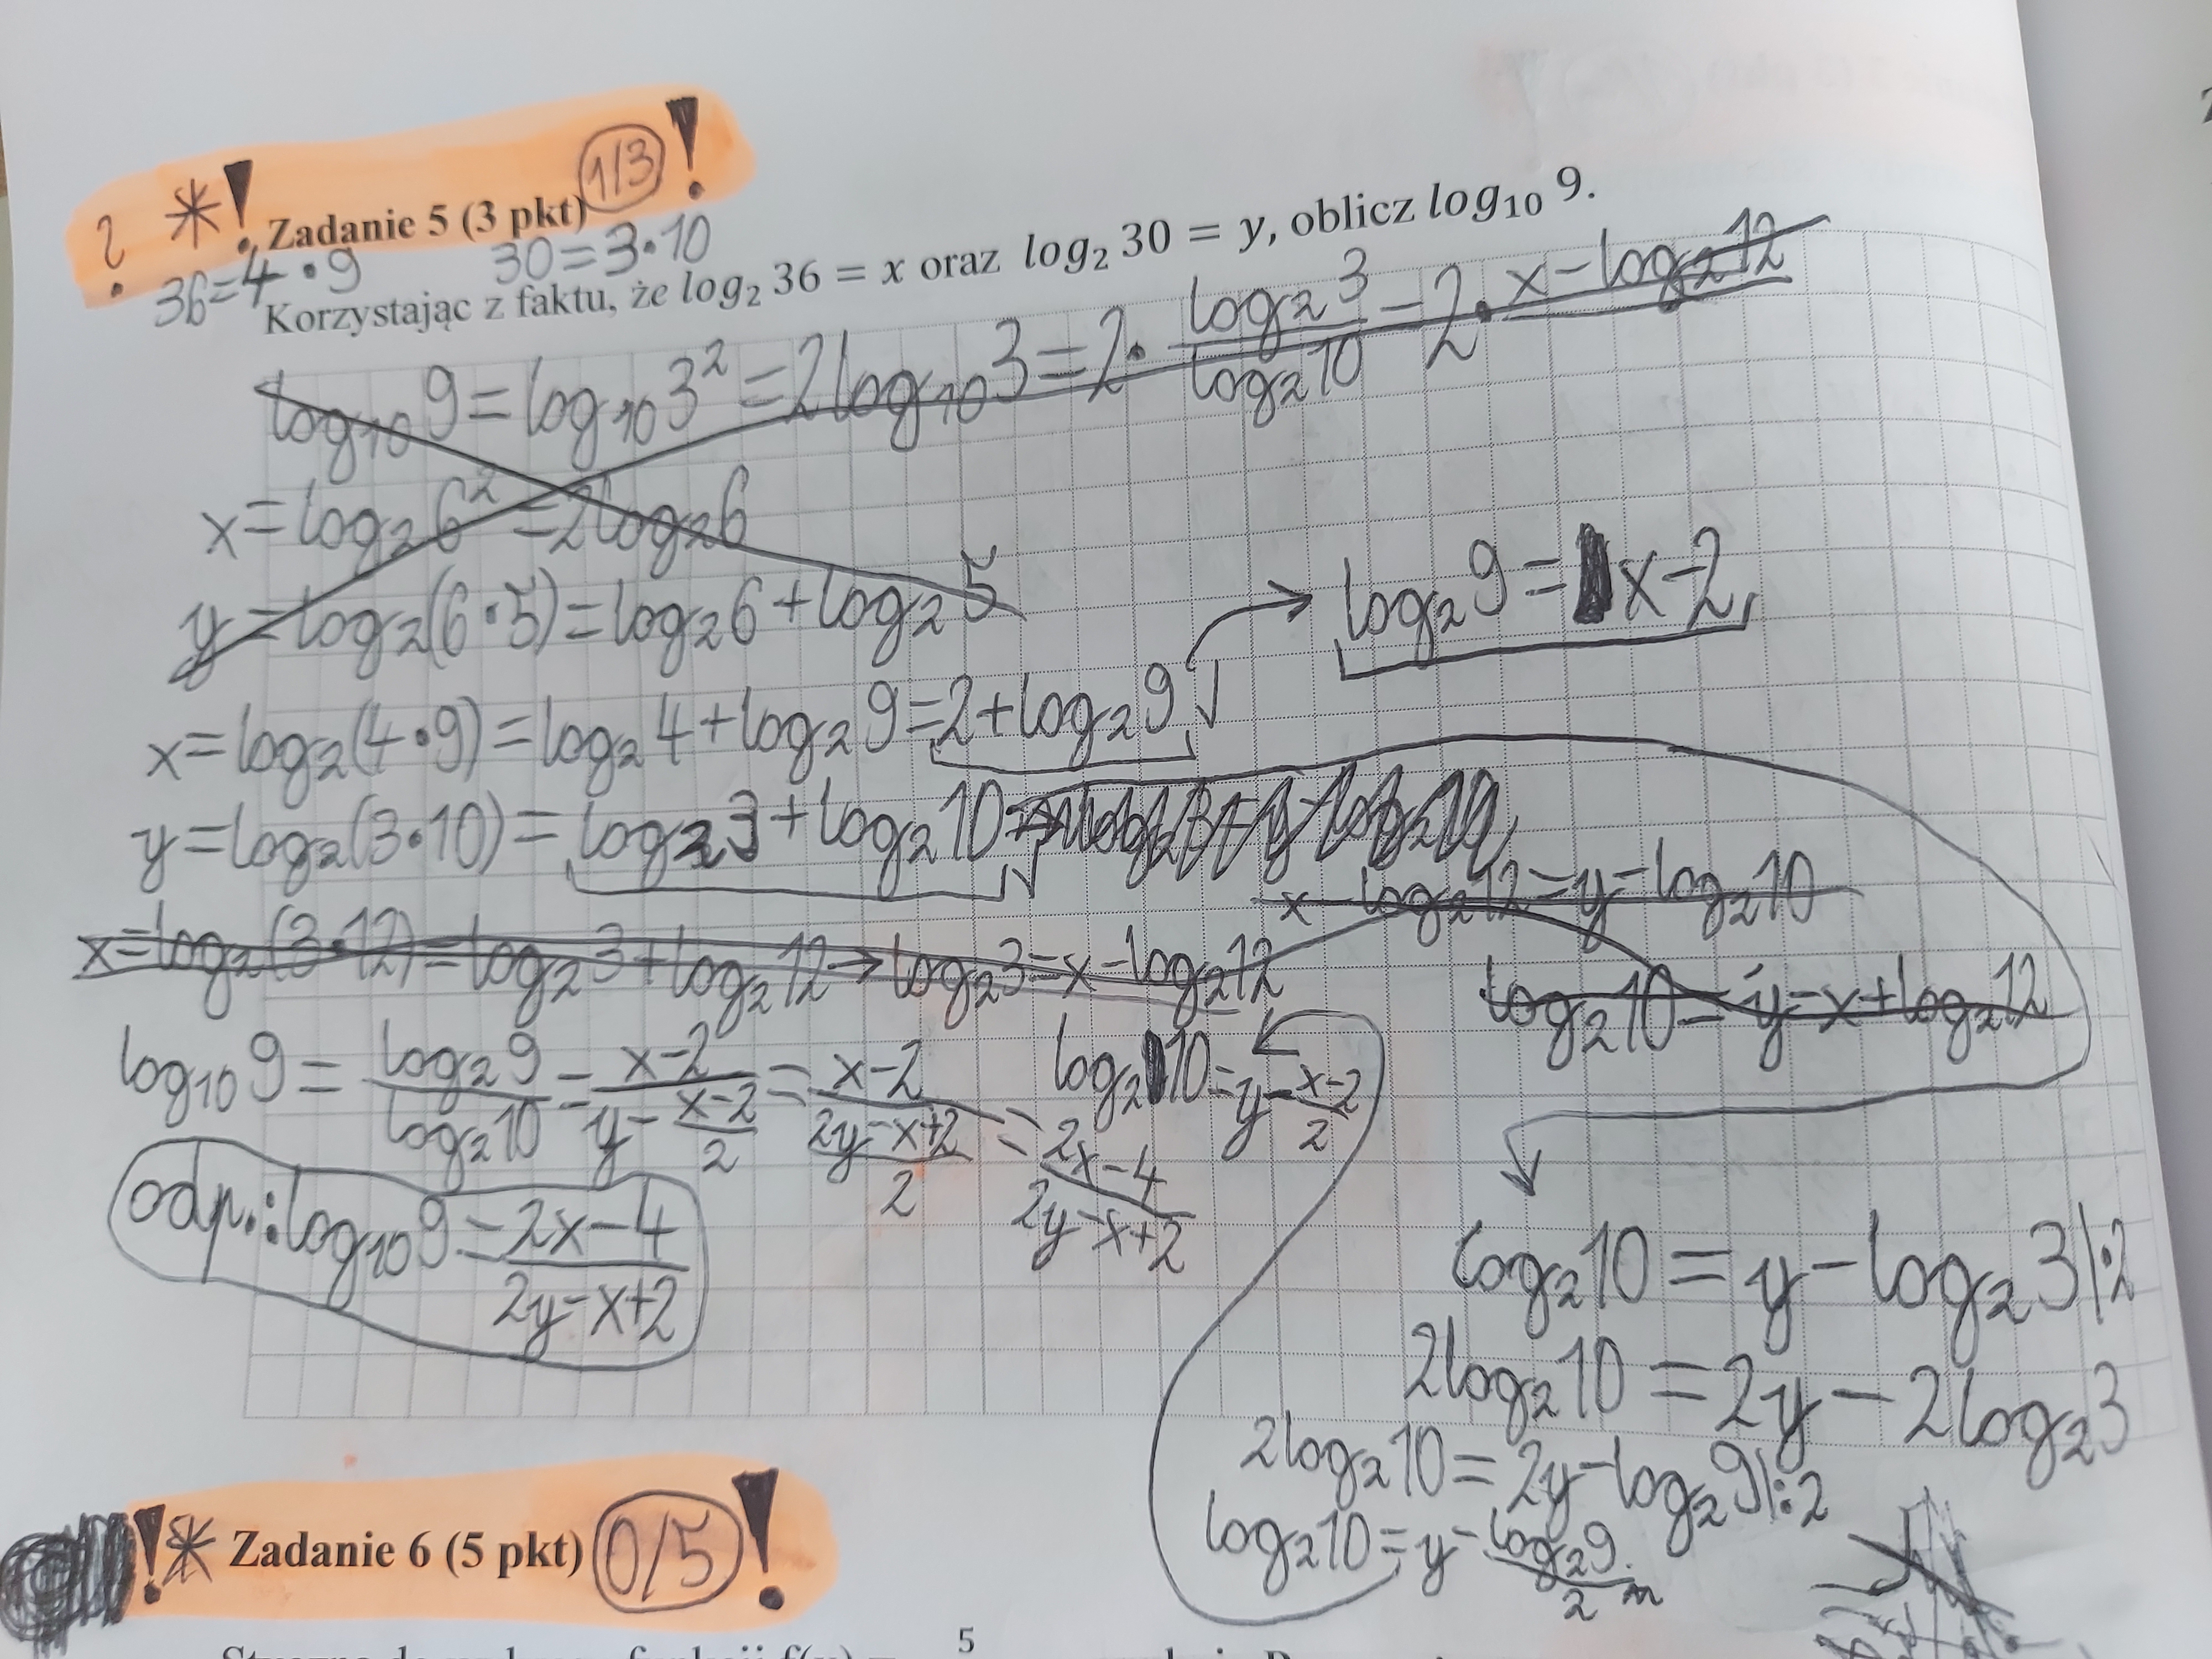 ? *! Zadanie 5 (3 pkt) 1/3 !
36=4•9 30=3•10
Korzystając z faktu, że log₂ 36 = x oraz log₂ 30 = y, oblicz log₁₀ 9.
log₁₀9=log₁₀3²=2log₁₀3=2•(log₂3)/(log₂10)=2•x-log₂12
x=log₂6²=2log₂6
y=log₂(6•5)=log₂6+log₂5
log₂9=x-2
x=log₂(4•9)=log₂4+log₂9=2+log₂9
y=log₂(3•10)=log₂3+log₂10
x-log₂12=y-log₂10
x=log₂(3•12)=log₂3+log₂12→log₂3=x-log₂12
log₂10=y-x+log₂12
log₁₀9=(log₂9)/(log₂10)=(x-2)/(y-(x-2)/2)=(x-2)/((2y-x+2)/2)=(2x-4)/(2y-x+2)
log₂10=y-(x-2)/2
odp.:log₁₀9=(2x-4)/(2y-x+2)
log₂10=y-log₂3|•2
2log₂10=2y-2log₂3
2log₂10=2y-log₂9|:2
log₂10=y-(log₂9)/2
!* Zadanie 6 (5 pkt) 0/5 !
5